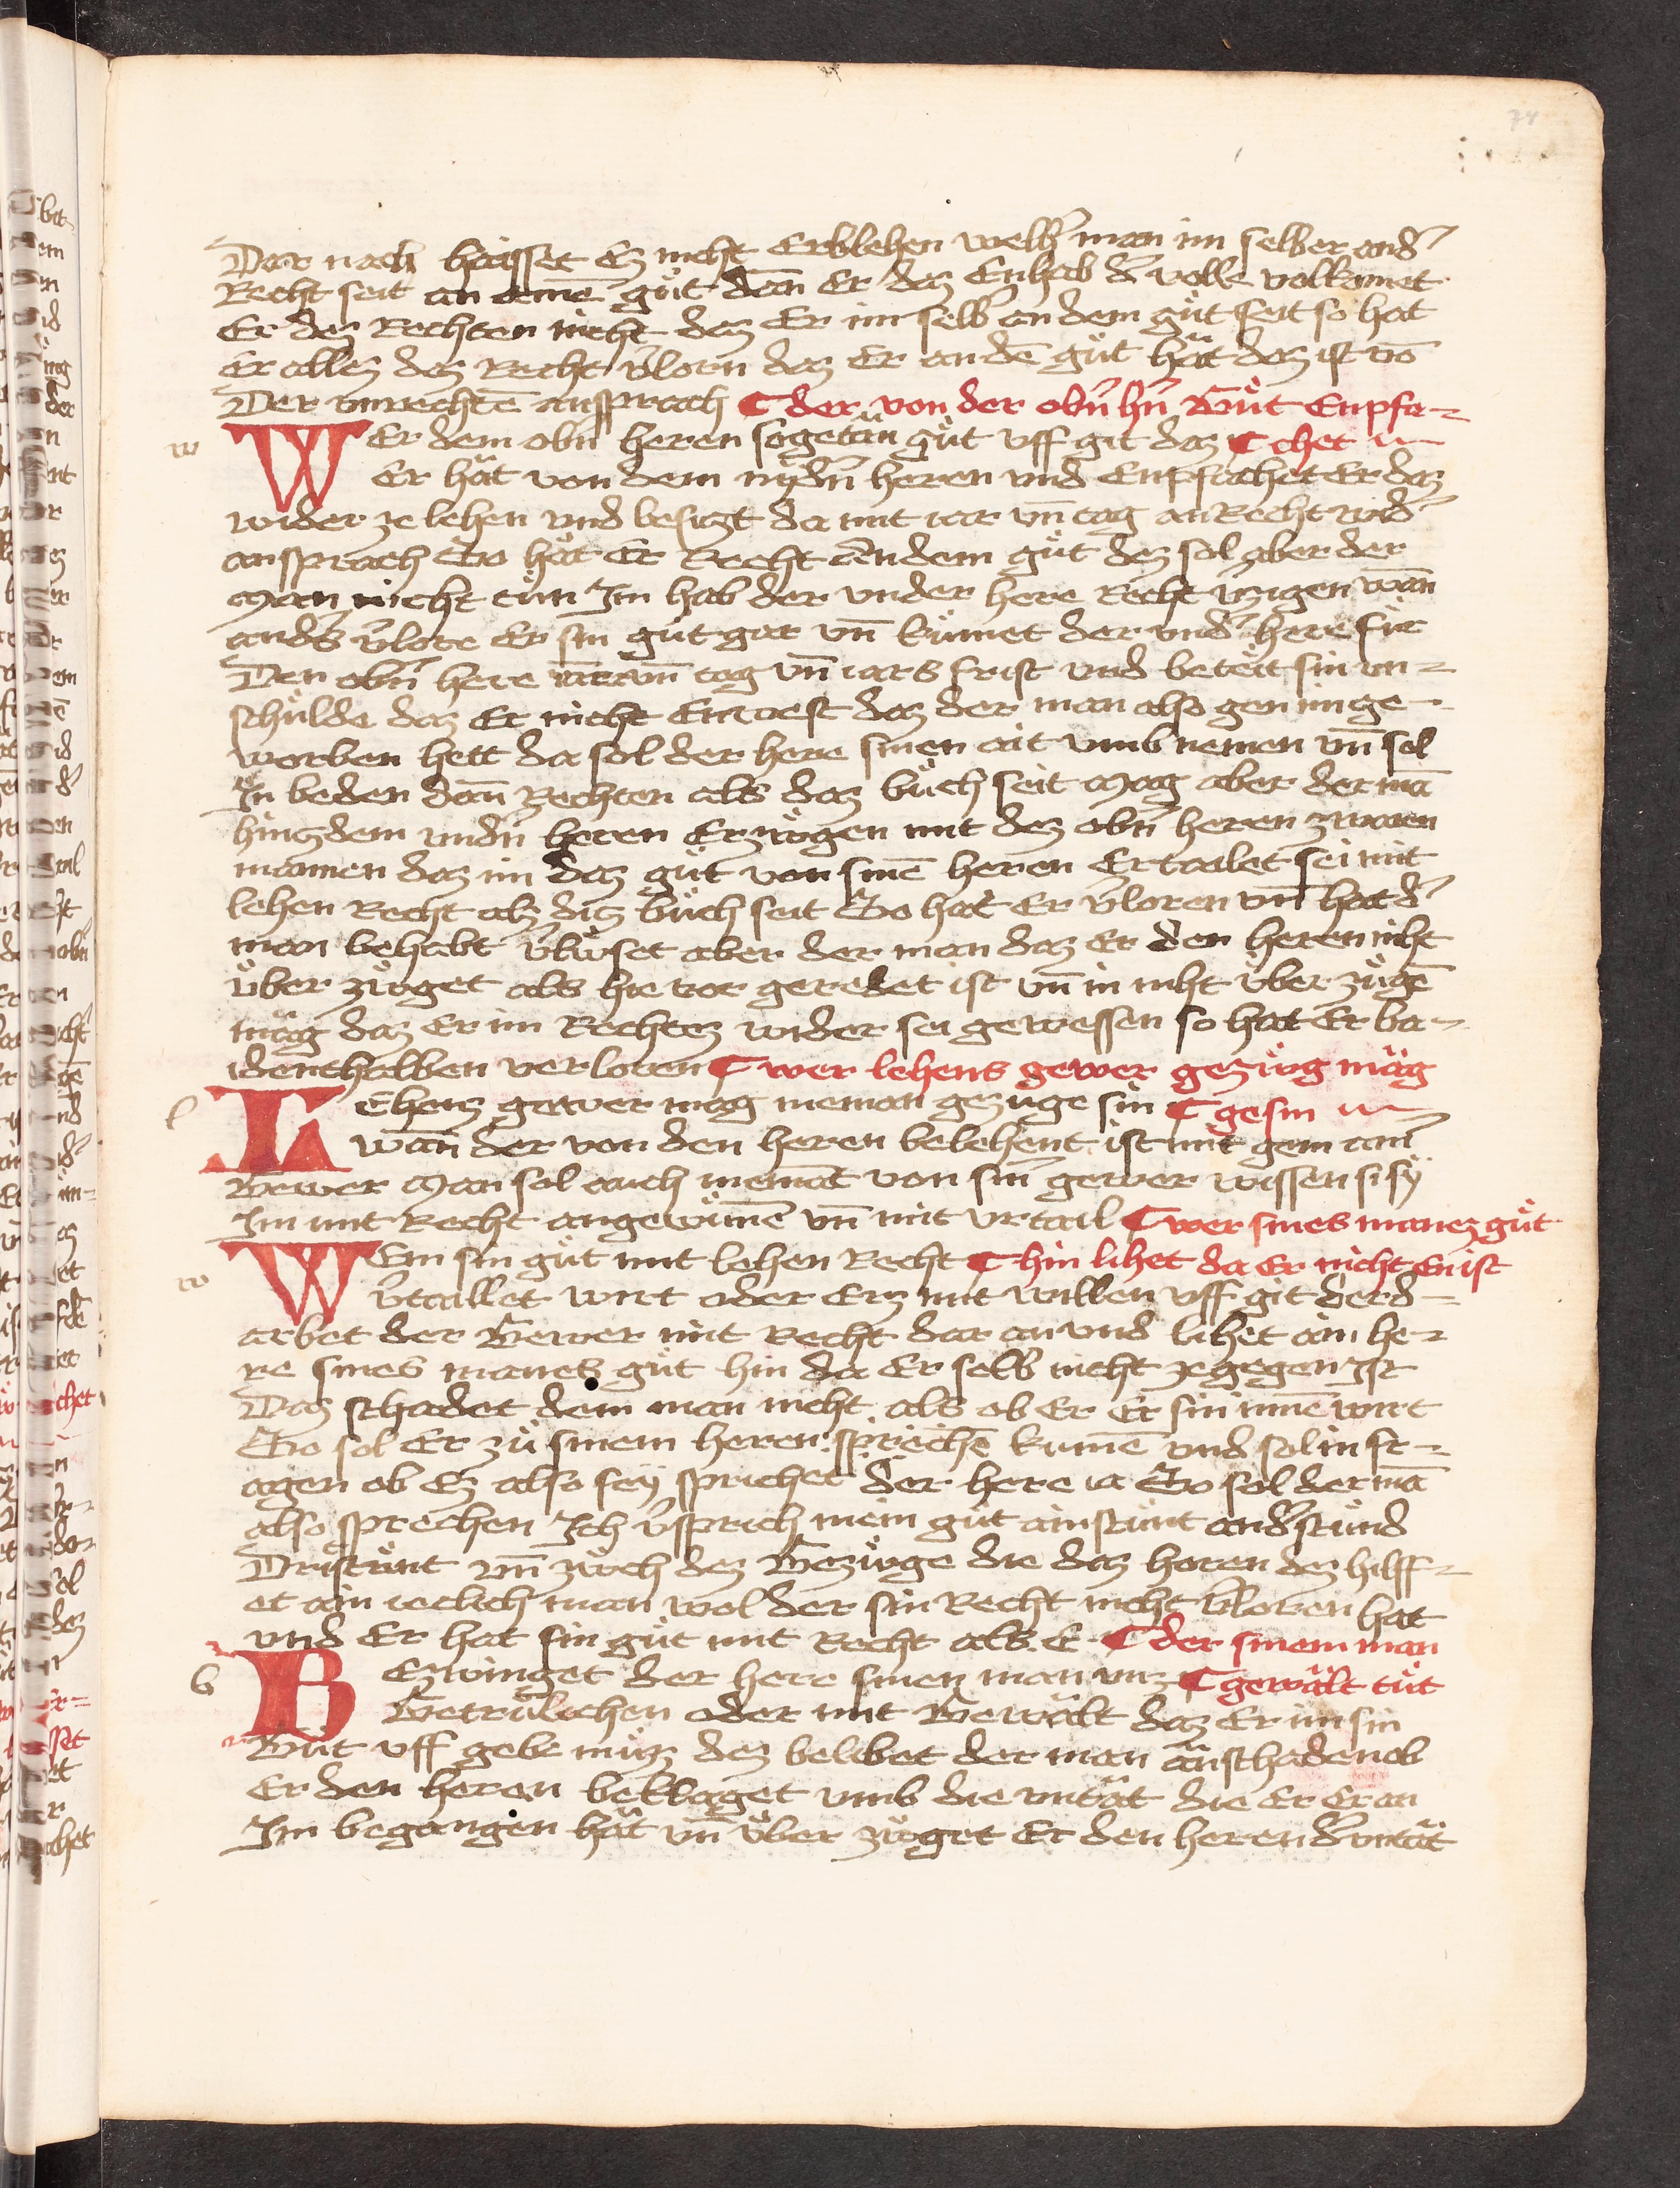 74
Dar nach haisset Ez nicht Erblehen welh' man im selber and'
Recht seit an eine͞ gůt dan͞ Er daz Enhab d' volle volkomet
Er dez Rechten nicht dez Er im selb' an dem gůt seit so hat
Er allez daz Recht v'lorn daz Er an de͞ gůt hăt daz ist vo͞
Der vnrechte͞ ansprach ¶ der von der obn' hn' Gůt Enpfa-
w WEr dem obn' heren sogetăn gůt vff git daz ¶ chet
Er hăt von dem nydn' heren vnd Enpfachet Er daz
wider ze lehen vnd besizt da mit iar vn͞ tag an Recht wid'
ansprach So hăt Er Recht an dem gůt dez sol aber der
Man nicht tůn Im hab der vnder here Recht vzigen wan͞
anders v'lore Er sin gůt gar vn͞ kůmet der vnd' here für
Den obn' here tag vn͞ iars frist vnd betět sin vn-
schulde daz Er nicht Enwest daz der man also gen im ge-
worben hett da sol der here sinen ait vmb nemen vn͞ sol
In beden dan͞ Rechten als daz bůch seit Mag aber der ma͞
hinz dem vndn' heren Erzügen mit dez obn' heren zwaen
mannen daz im daz gůt von sine͞ heren Ertailet sei mit
lehen Recht alz diz bůch seit So hat Er v'loren vn͞ hat d'
man behabt v'lüset aber der man daz Er den heren niht
über züget als hie vor geredet ist vn͞ in niht über züge͞
măg daz Er im Rechtez wider sei gewessen so hat Er ba-
denthalben verloren ¶ wer lehens gewer gezüg măg
l LEhenz gewer mag nieman gezüge sin ¶ gesin
wan͞ der von den heren belehent ist mit gem ain'
Gewer Man sol auch niema͞t von sin' gewer wissen si sy
Im mit Recht angewüne͞ vn͞ mit vrtail ¶ wer sines manez gůt
w WEm sin gůt mit lehen Recht ¶ hin lihet da Er nicht Enist
v'taillet wirt oder Erz mit willen vff git d'erd-
arbet der Gewer mit Recht dar an vnd lihet ain he-
re sines manes gůt hin da Er selb' nicht ze gegen ist
Daz schadet dem man nicht als ob Er Er sin inne͞ wirt
So sol Er zů sinem heren spreche͞ kume͞ vnd sol in fr-
agen ob Ez also sey sprichet der here ia So sol der ma͞
also sprechen Ich v'sprich mein gůt ainstunt and'stund
Dristunt vn͞ züch dez Gezüge die daz horen dez hilff-
et ain ieclich man wol der sin Recht nicht v'loren hat
vnd Er hat sin gůt mit Recht als E ¶ der sinem man
b BEzwinget der here sinen man vnz ¶ gewält tůt
Getrůlichen oder mit Gewălt daz Er im sin
Gůt vff gebe můz dez belibet der man ăn schaden ob
Er den heren beklaget vmb die vntăt die Er Er an
Im begangen hăt vn͞ über züget Er den heren d' vntăt